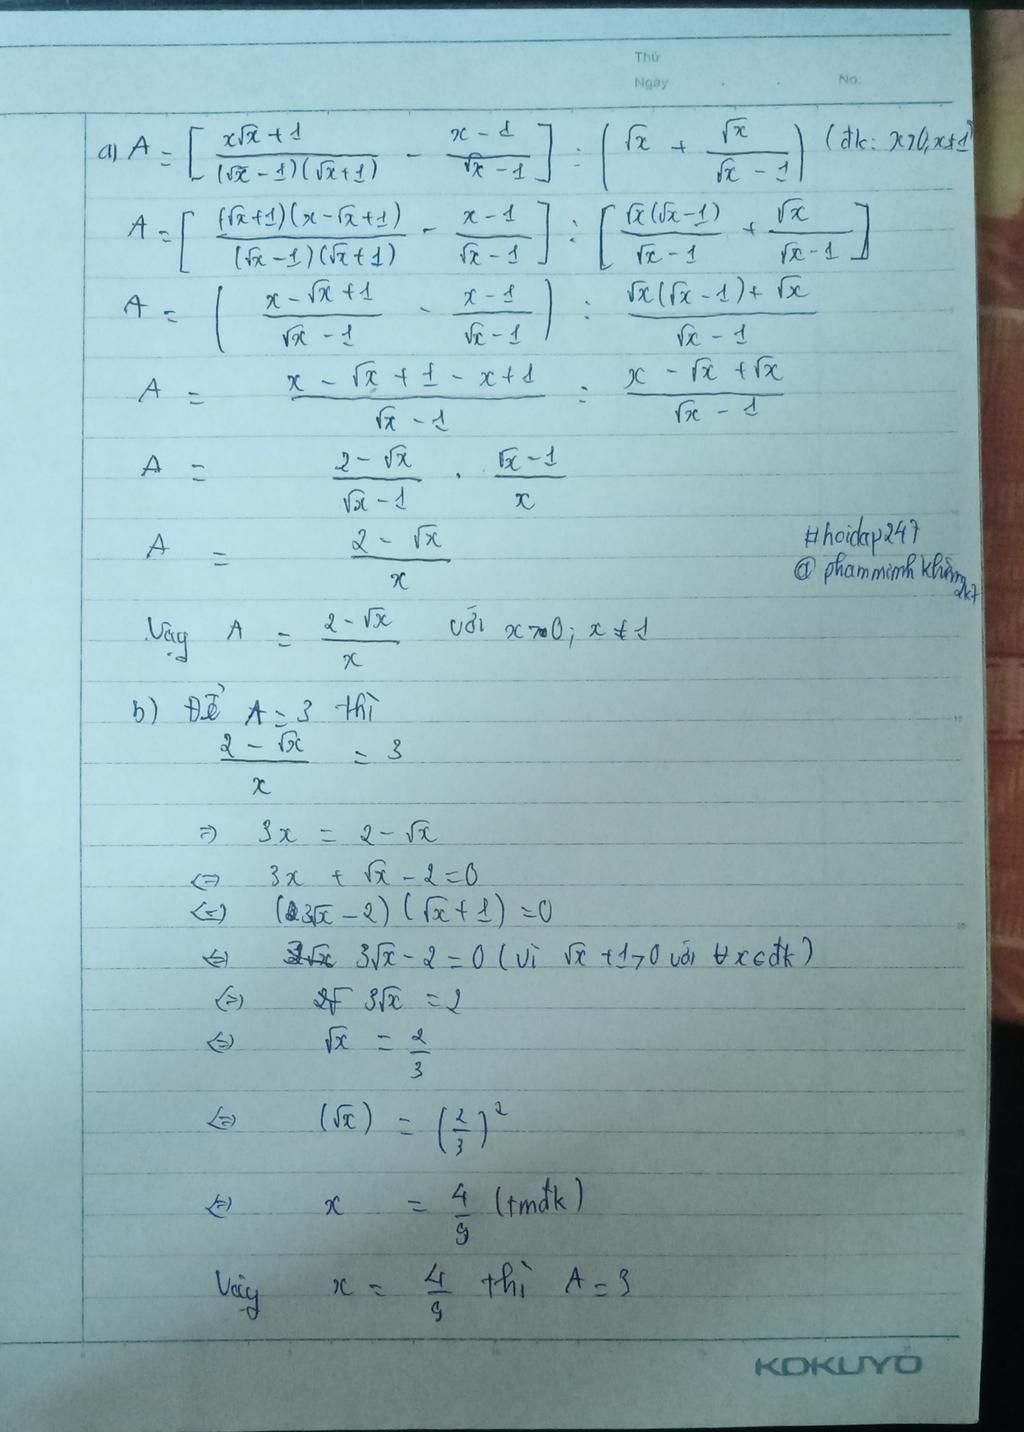 Thứ
Ngày No.
a) A = [ (x√x + 1)/((√x - 1)(√x + 1)) - (x - 1)/(√x - 1) ] : ( √x + √x/(√x - 1) ) (đk: x>0, x≠1)
A = [ ((√x+1)(x-√x+1))/((√x-1)(√x+1)) - (x-1)/(√x-1) ] : [ (√x(√x-1))/(√x-1) + √x/(√x-1) ]
A = ( (x-√x+1)/(√x-1) - (x-1)/(√x-1) ) : (√x(√x-1)+√x)/(√x-1)
A = (x - √x + 1 - x + 1)/(√x - 1) : (x - √x + √x)/(√x - 1)
A = (2 - √x)/(√x - 1) . (√x - 1)/x
A = (2 - √x)/x
#hoidap247
@phamminhkhiêm2k7
Vậy A = (2-√x)/x với x>0; x≠1
b) Để A=3 thì
(2 - √x)/x = 3
=> 3x = 2 - √x
<=> 3x + √x - 2 = 0
<=> (3√x - 2)(√x + 1) = 0
<=> 3√x - 2 = 0 (vì √x + 1 > 0 với ∀x∈đk)
<=> 3√x = 2
<=> √x = 2/3
<=> (√x) = (2/3)²
<=> x = 4/9 (tmđk)
Vậy x = 4/9 thì A = 3
KOKUYO